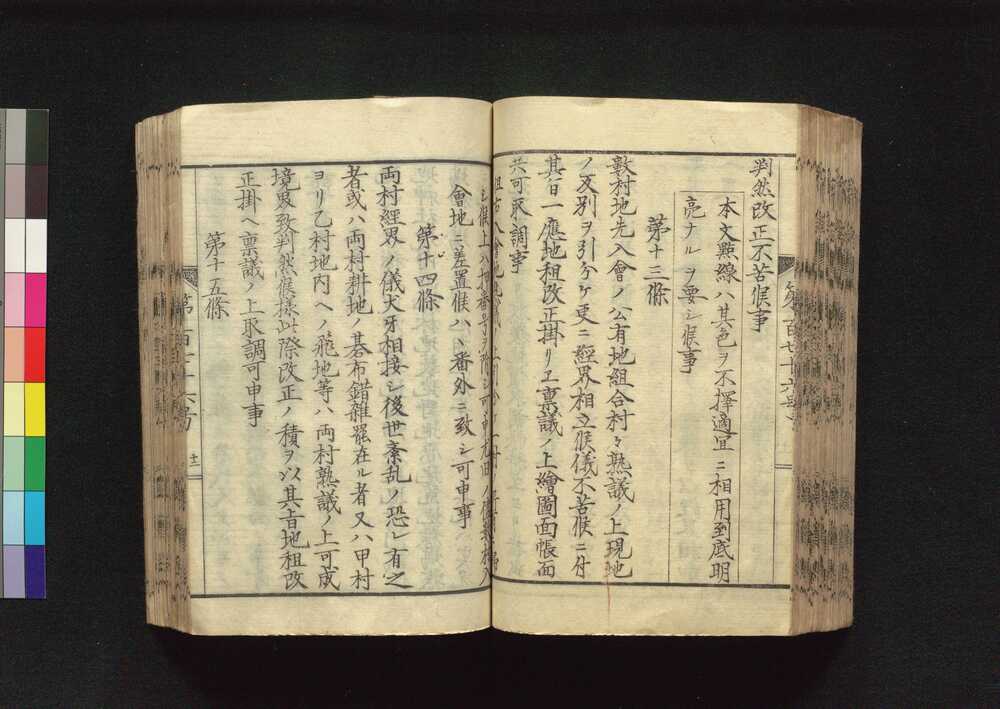 判然改正不苦候事
本文點線ハ其色ヲ不擇適宜ニ相用到底明
亮ナルヲ要シ候事
第十三條
數村地先入會ノ公有地組合村々熟議ノ上現地
ノ反別ヲ引分ケ更ニ經界相立候儀不苦候ニ付
其旨一應地租改正掛リエ稟議ノ上繪圖面帳面
共可取調事
會地ニ差置候ハヽ番外ニ致シ可申事
第十四條
両村經界ノ儀犬牙相接シ後世紊乱ノ恐レ有之
者或ハ両村耕地ノ碁布錯雜罷在ル者又ハ甲村
ヨリ乙村地内ヘノ飛地等ハ両村熟議ノ上可成
境界致判然候樣此際改正ノ積ヲ以其旨地租改
正掛ヘ稟議ノ上取調可申事
第十五條